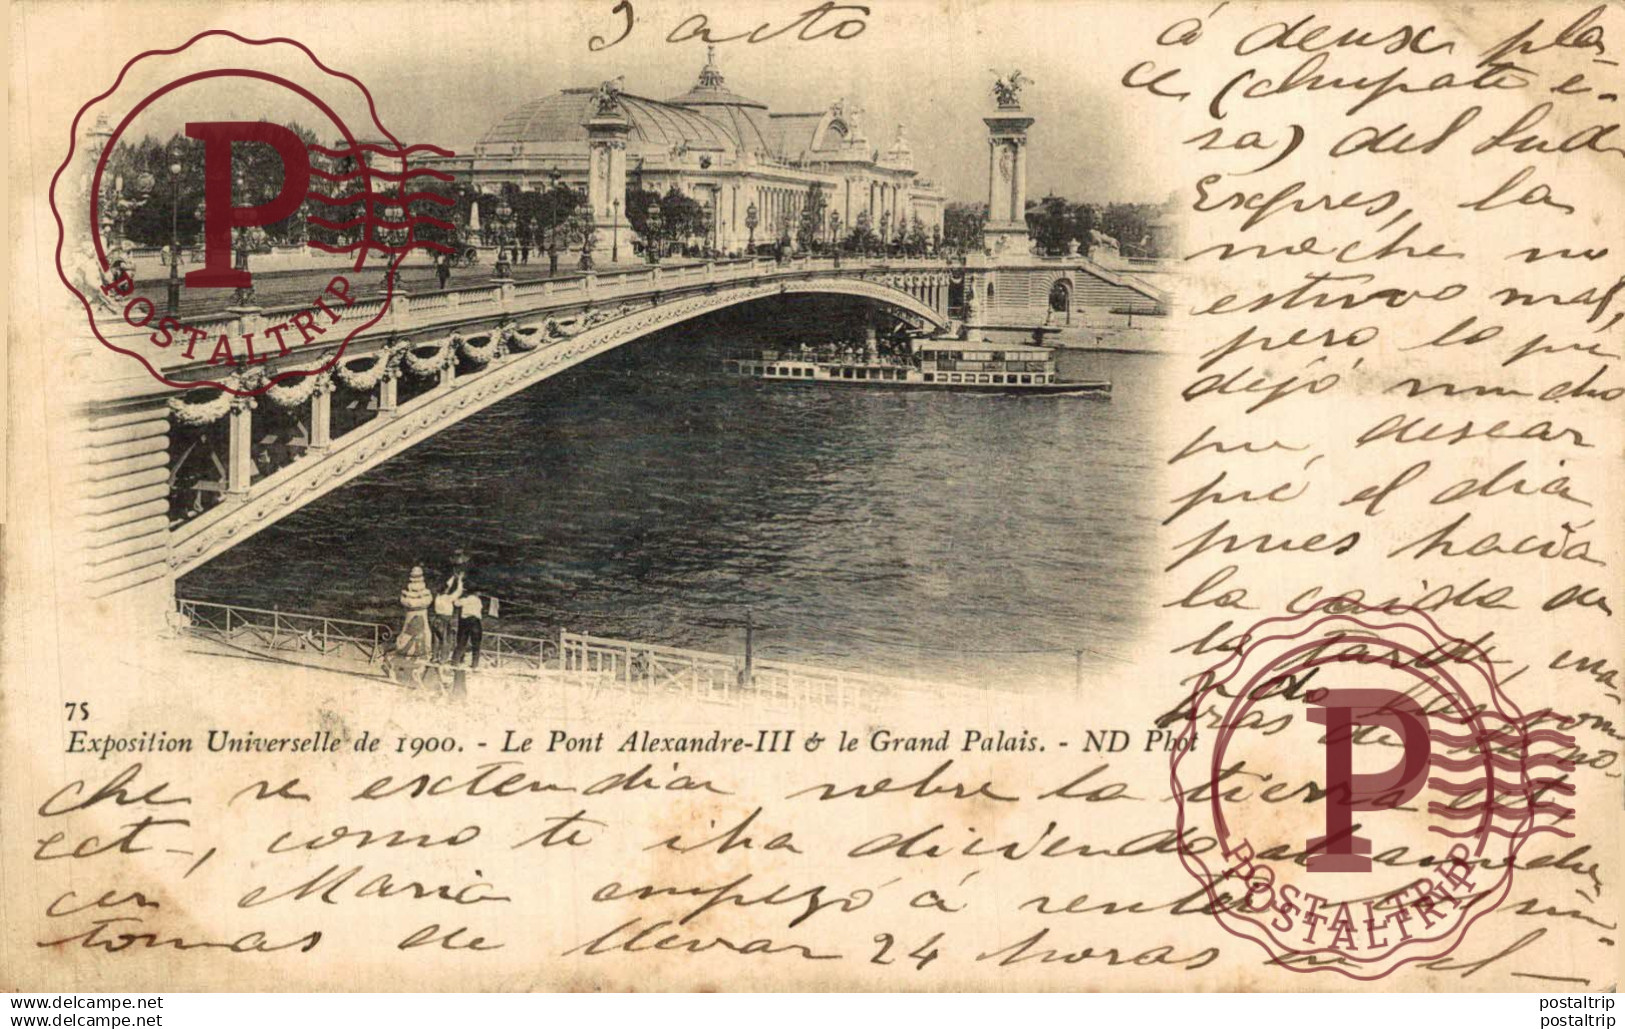 3 acto
á deuxe pla-
ce (chupate e-
sa) del Sud
Expres, la
noche no
estuvo mal,
pero lo que
dejó mucho
que desear
fué el dia,
pues hacia
la caida de
la tarde, cua-
ndo las som
bras de la no-
75
Exposition Universelle de 1900. - Le Pont Alexandre-III & le Grand Palais. - ND Phot
che se extendian sobre la tierra ect,
ect-, como te iba diciendo al anoche
cer Maria empezó á sentir sin-
tomas de llevar 24 horas en el-
P
POSTALTRIP
P
POSTALTRIP
POSTALTRIP
delcampe.net
postaltrip
delcampe.net
postaltrip